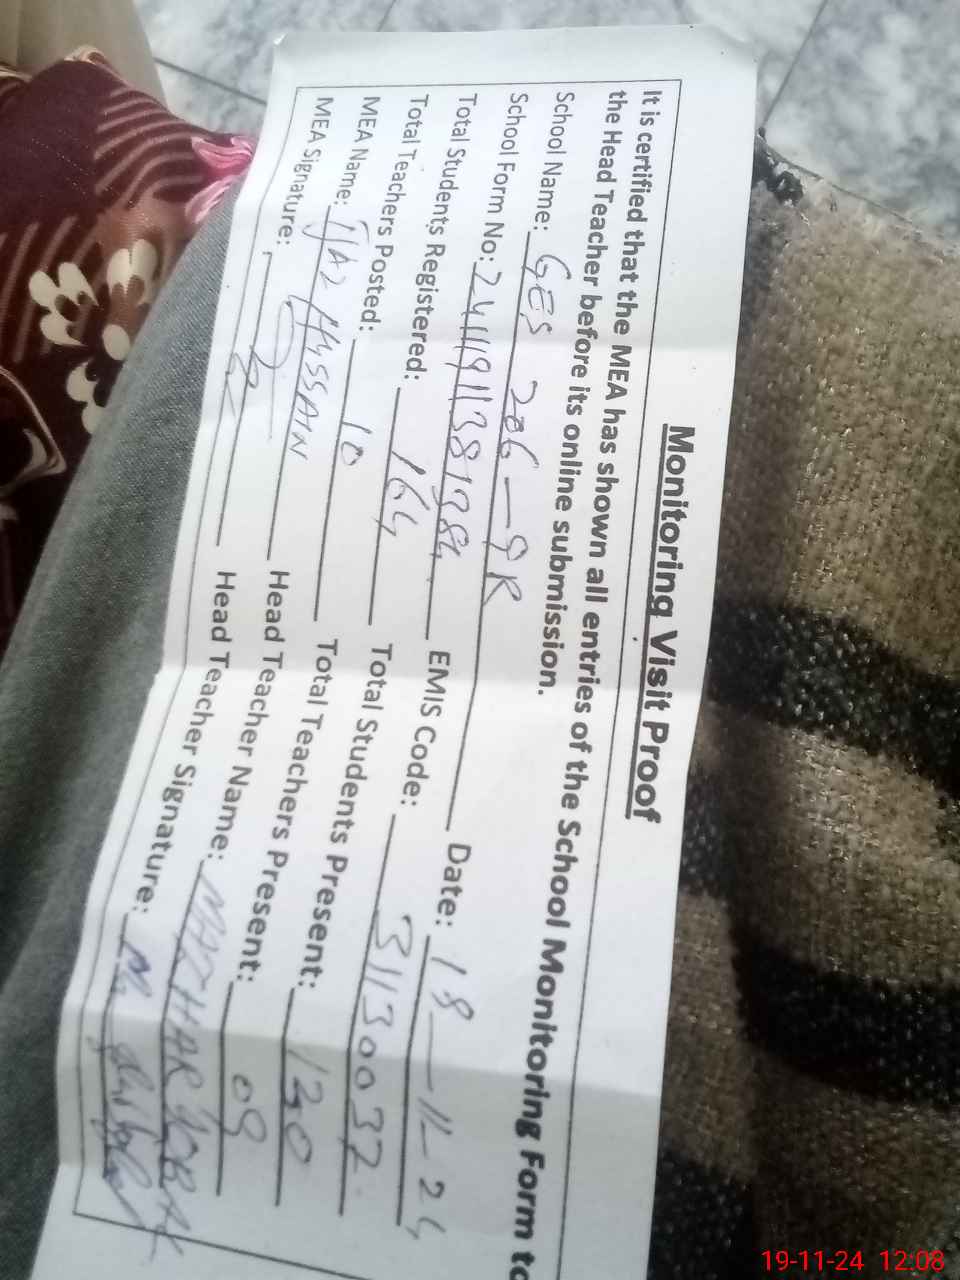 Monitoring Visit Proof
It is certified that the MEA has shown all entries of the School Monitoring Form to
the Head Teacher before its online submission.
School Name: GES 206-9R Date: 19-11-24
School Form No: 241119113819384 EMIS Code: 31130037
Total Students Registered: 164 Total Students Present: 130
Total Teachers Posted: 10 Total Teachers Present: 09
MEA Name: IJAZ HUSSAIN Head Teacher Name: MAZHAR IQBAL
MEA Signature: Head Teacher Signature:
19-11-24 12:08